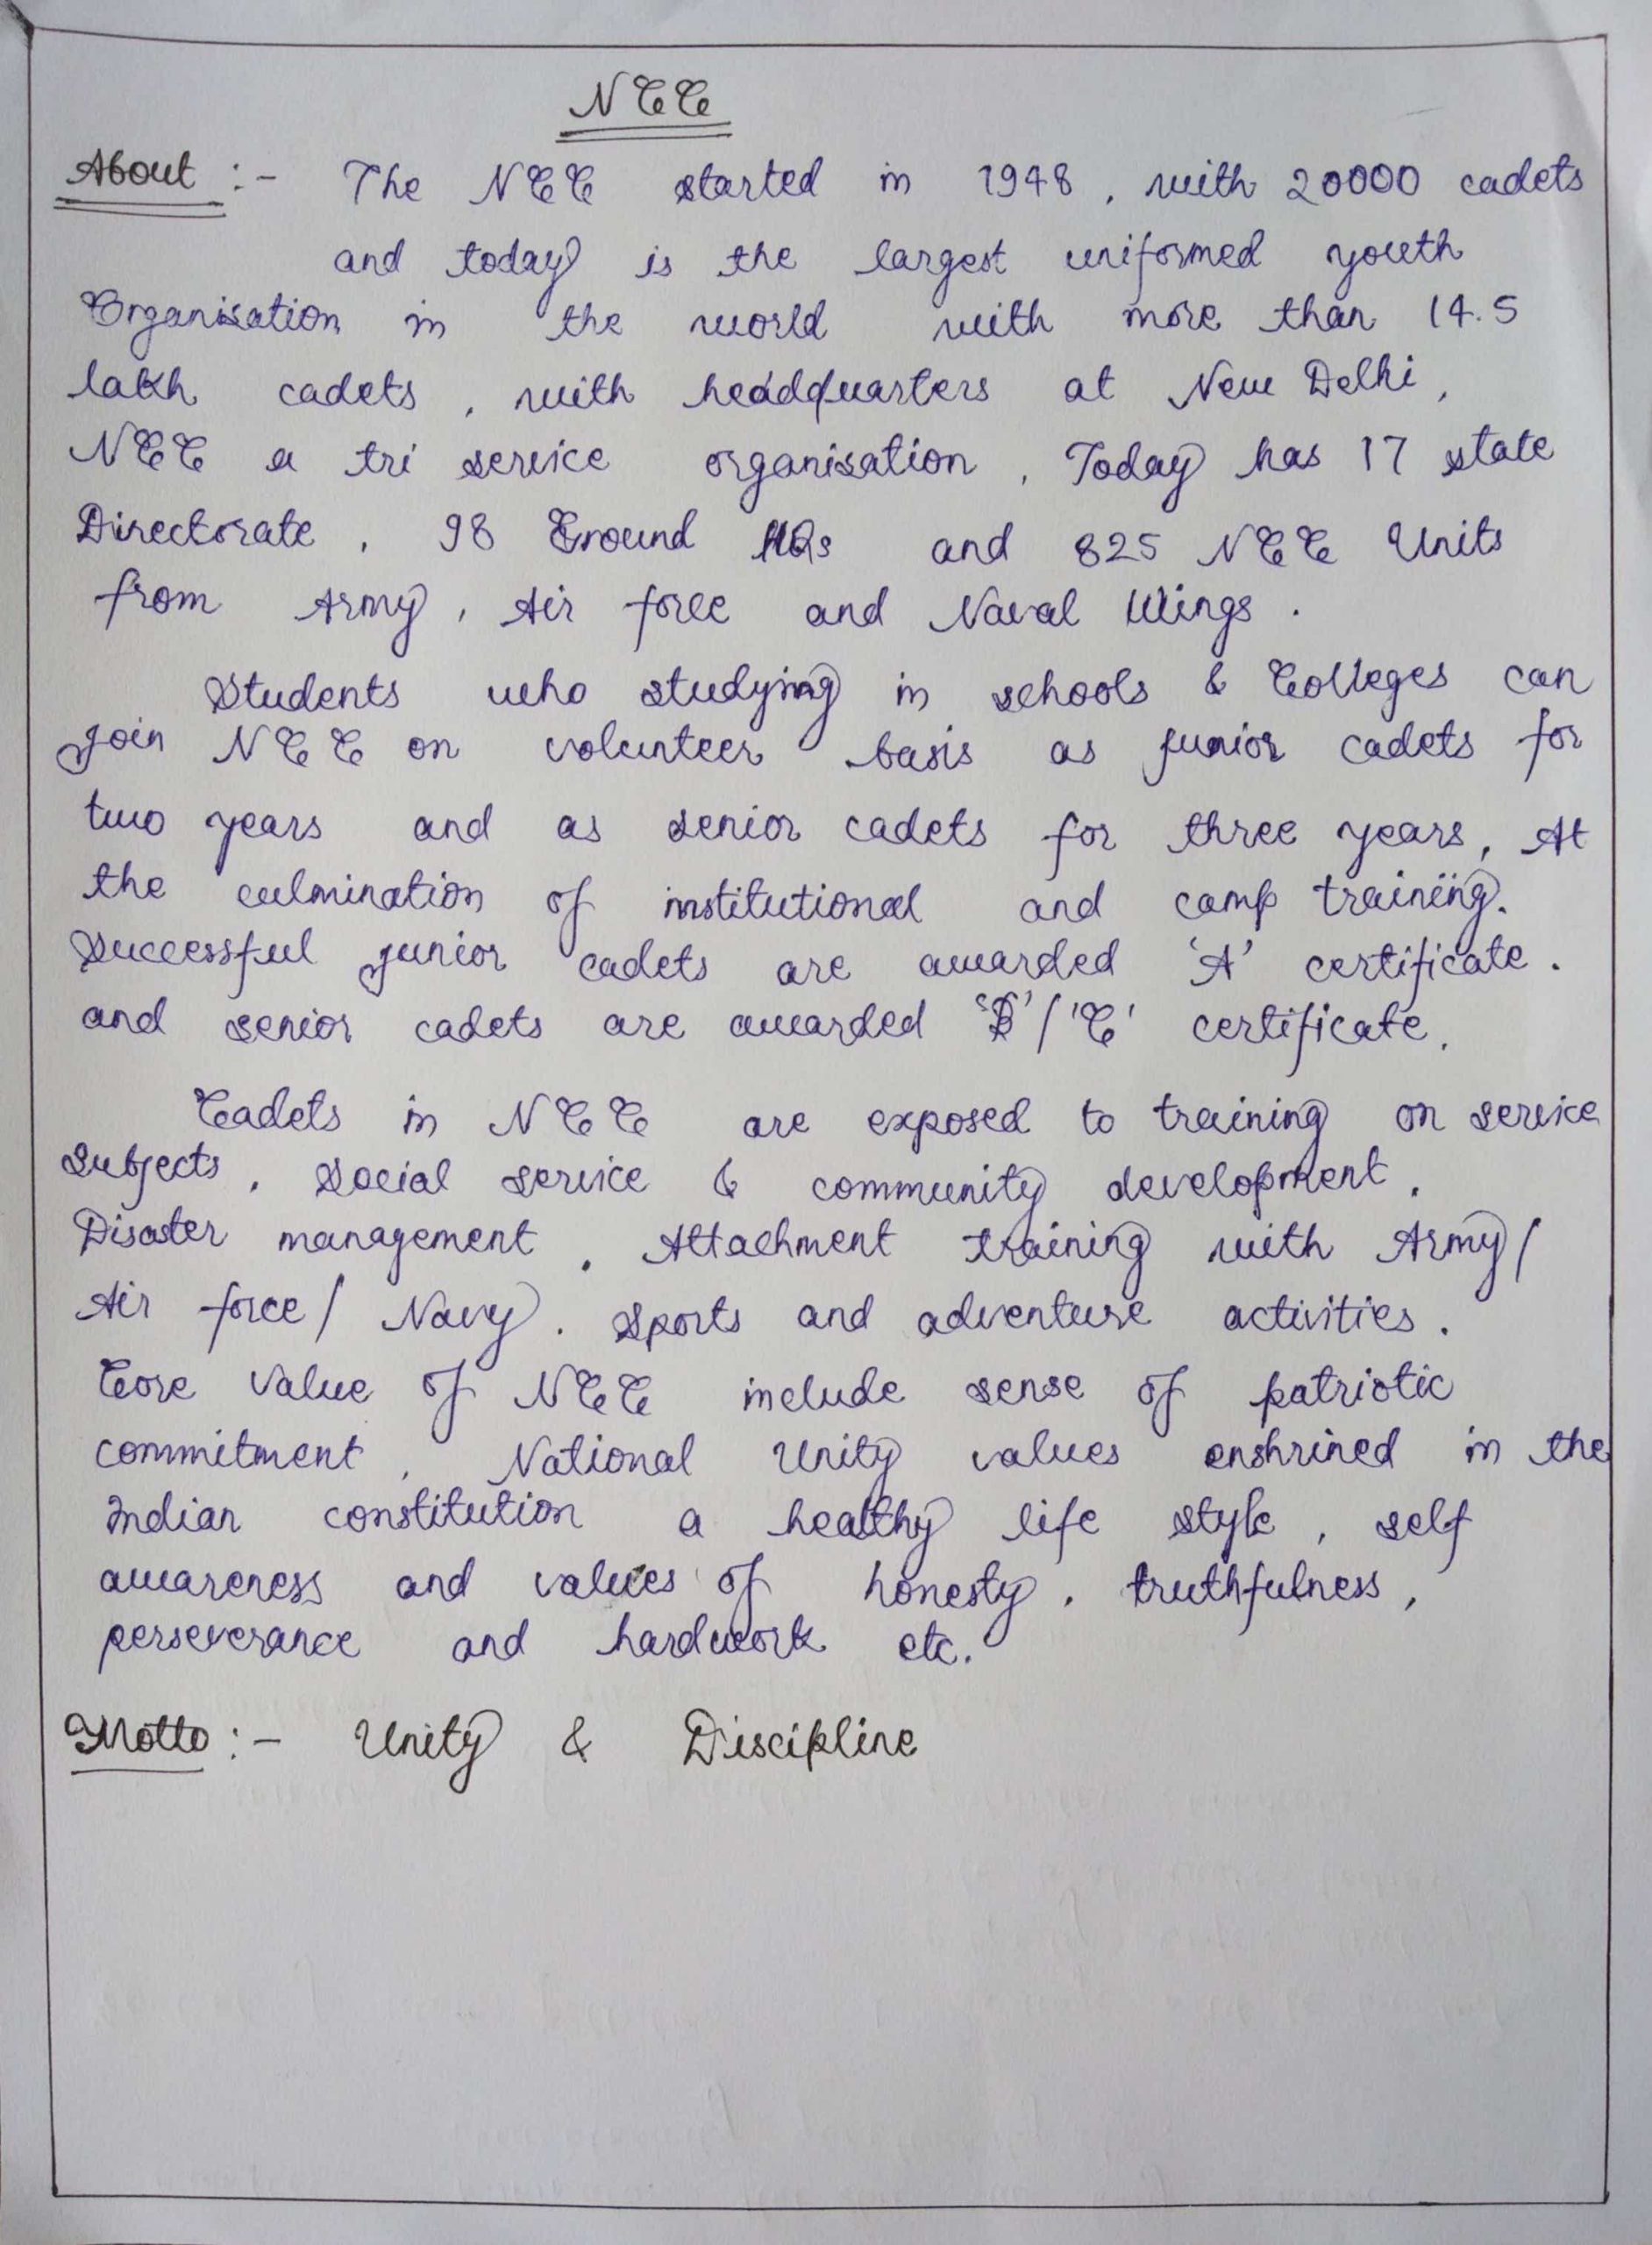 NCC
About :- The NCC started in 1948, with 20000 cadets
and today is the largest uniformed youth
Organisation in the world with more than 14.5
lakh cadets, with headquarters at New Delhi,
NCC a tri service organisation, Today has 17 state
Directorate, 98 Ground HQs and 825 NCC Units
from Army, Air force and Naval Wings.
Students who studying in schools & Colleges can
join NCC on volunteer basis as junior cadets for
two years and as senior cadets for three years, At
the culmination of institutional and camp training.
Successful junior cadets are awarded 'A' certificate.
and senior cadets are awarded 'B'/'C' certificate.
Cadets in NCC are exposed to training on service
subjects, Social service & community development,
Disaster management, Attachment training with Army/
Air force/ Navy. Sports and adventure activities.
Core value of NCC include sense of patriotic
commitment, National Unity values enshrined in the
Indian constitution a healthy life style, self
awareness and values of honesty, truthfulness,
perseverance and hardwork etc.
Motto :- Unity & Discipline